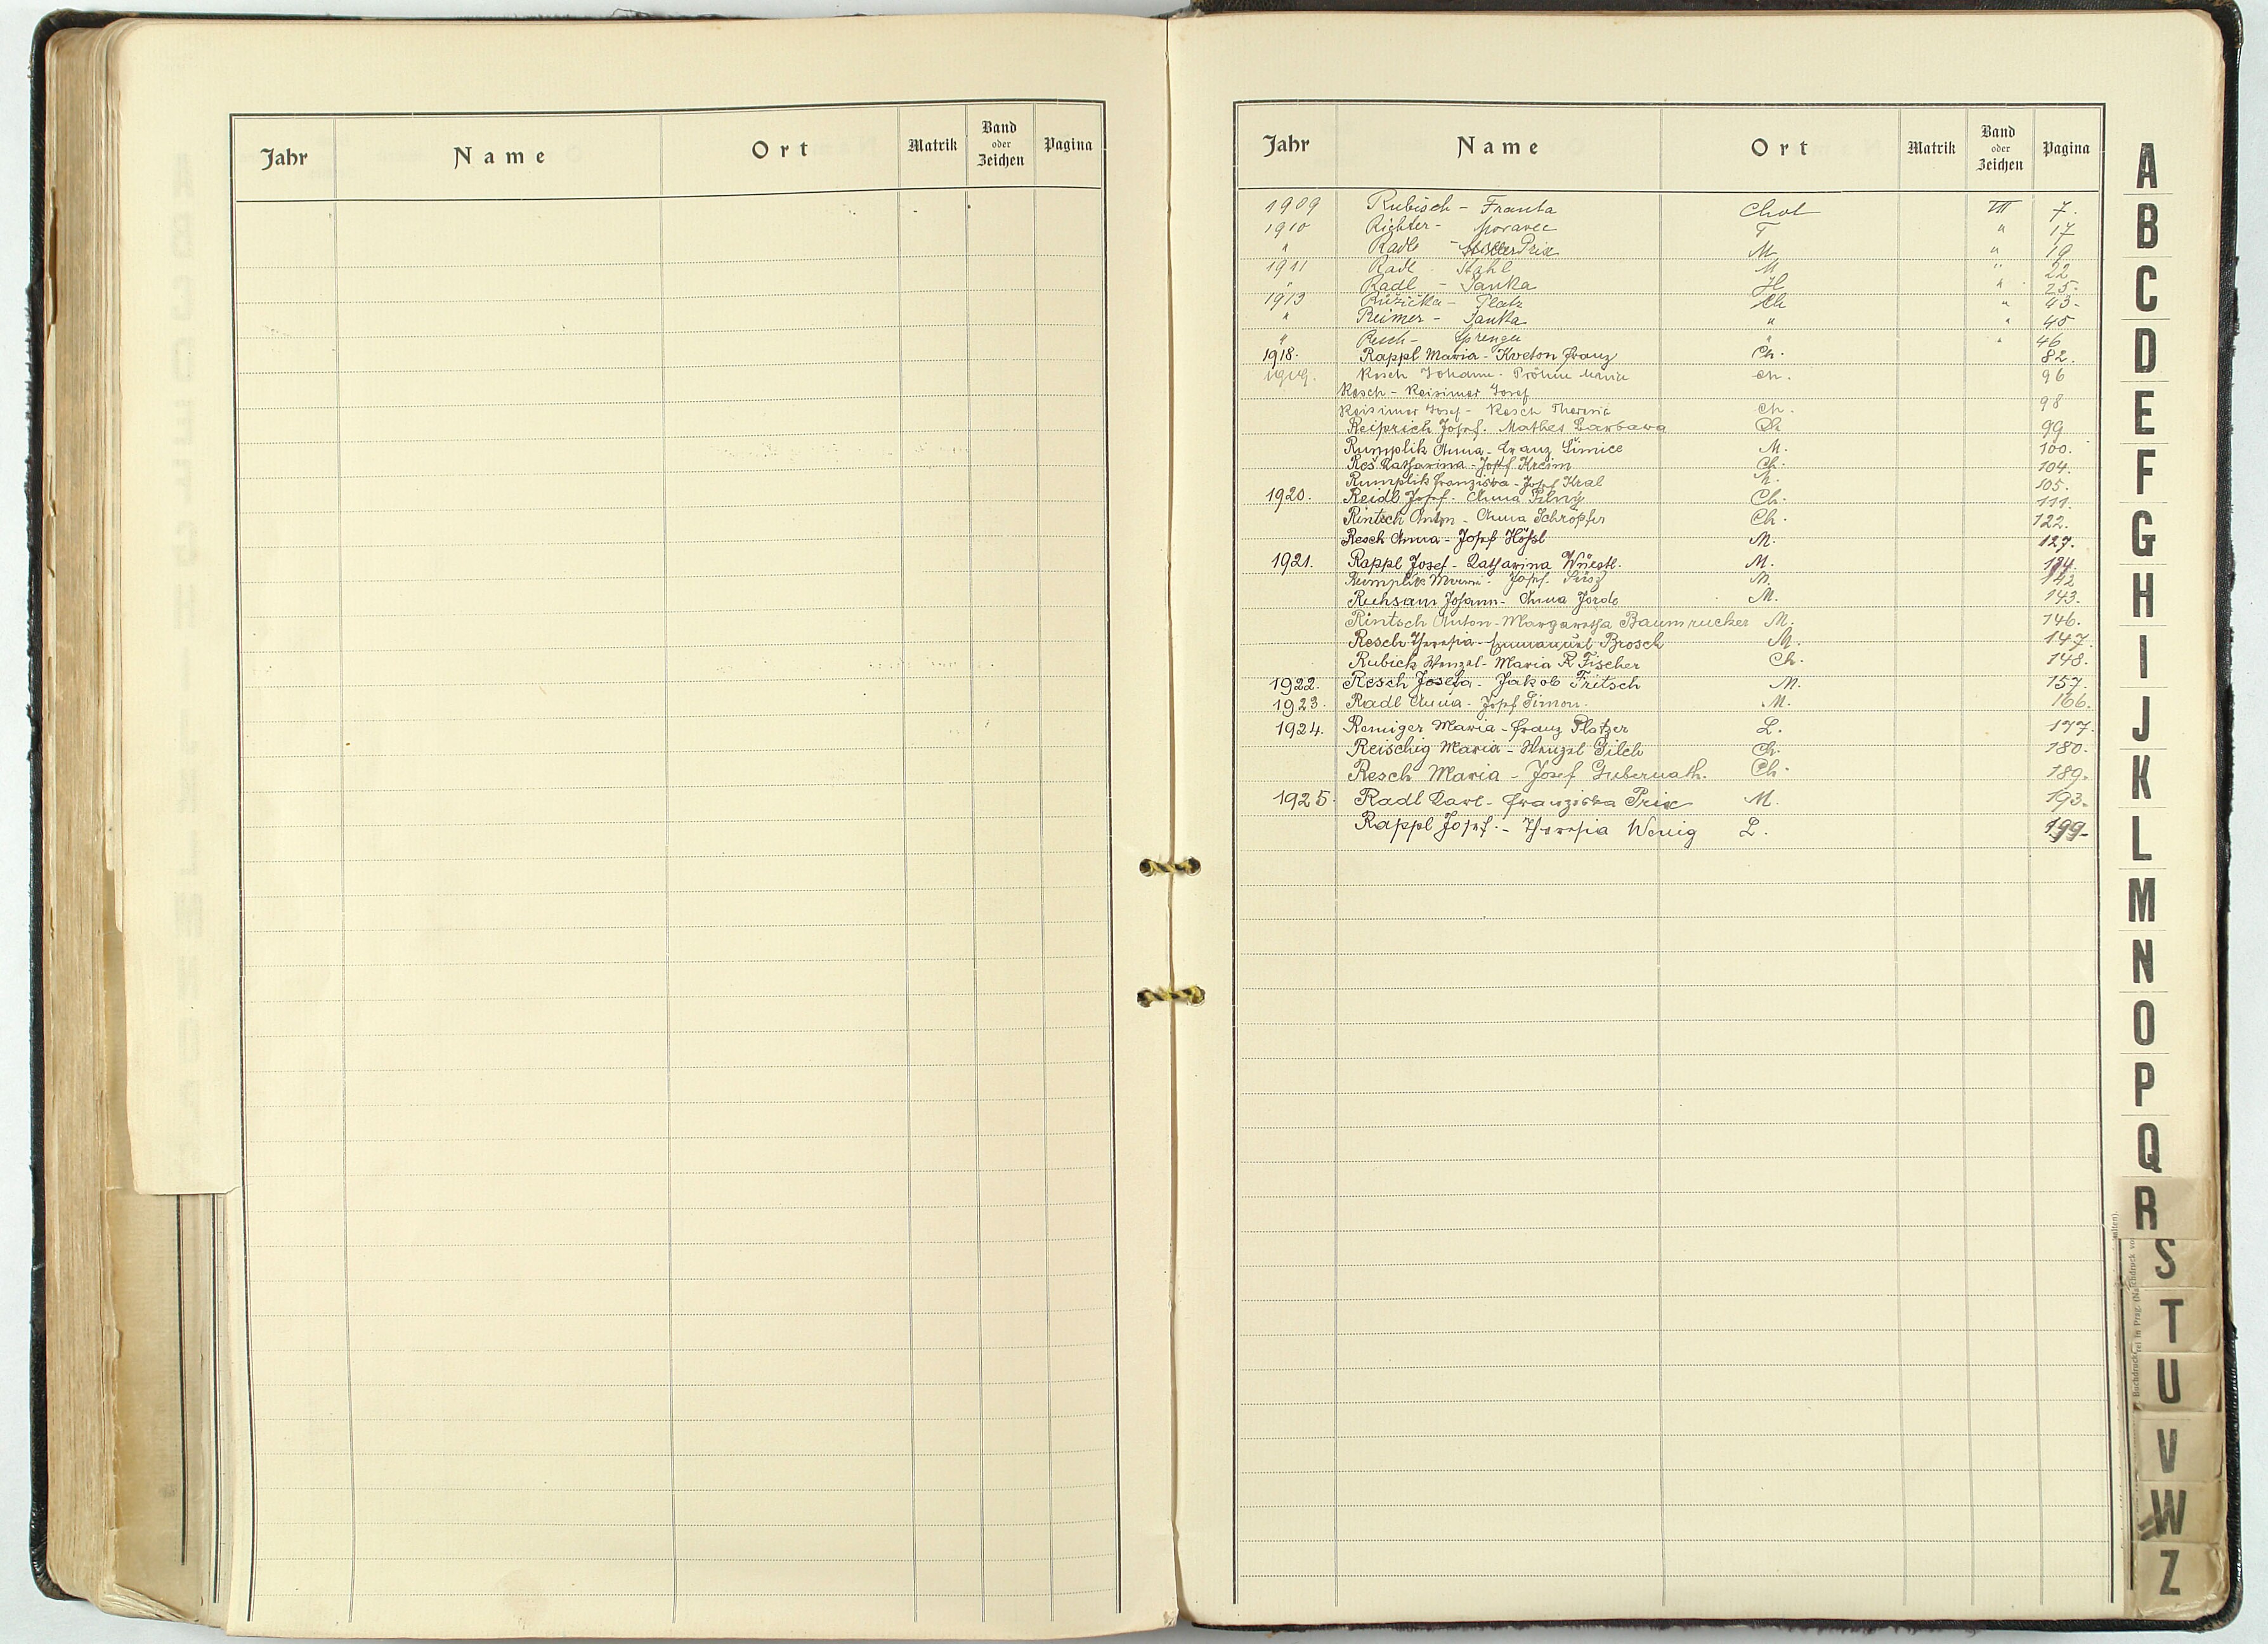 Jahr Name Ort Matrik Band oder Zeichen Pagina
Jahr Name Ort Matrik Band oder Zeichen Pagina
1909 Rubisch - Franta Chot III 7.
1910 Richter - Moravec T " 17
" Radl - Prix M " 19
1911 Radl - Stahl M " 22
" Radl - Panka H " 25.
1913 Růžička - Platz Ch " 43-
" Reimer - Janka " " 45
" Resch - " " 46
1918. Rappl Maria - Kveton Franz Ch. 82.
Resch Johann - Pröhm Maria Ch. 96
Resch - Reisimer Josef
Reisimer Josef - Resch Theresie Ch. 98
Reiprich Josef. Mathes Barbara Ch 99
Rumplik Anna - Franz Šimice M. 100.
Reš Katharina - Josef Kreim Ch. 104.
Rumplik Franziska - Josef Kral M. 105.
1920. Reidl Josef - Anna Pilný Ch. 111.
Rintsch Anton - Anna Schröpfer Ch. 122.
Resch Anna - Josef Hößl M. 127.
1921. Rappl Josef - Katharina M. 134.
Rumplik - Josef M. 142
Ruhsam Johann - Anna Jorde M. 143.
Rintsch Anton - Margaretha Baumrucker M. 146.
Resch Theresia - Emmanuel Brosch M. 147.
Rubick Wenzel - Maria R Fischer Ch. 148.
1922. Resch Josefa - Jakob Fritsch M. 157.
1923. Radl Anna - Josef Simon. M. 166.
1924. Reniger Maria - Franz Platzer L. 177.
Reischig Maria - Wenzel Gilch Ch. 180.
Resch Maria - Josef Gubernath. Ch. 189.
1925. Radl Karl - Franziska Prix M. 193.
Rappl Josef - Theresia Wenig L. 199.
A
B
C
D
E
F
G
H
I
J
K
L
M
N
O
P
Q
R
S
T
U
V
W
Z